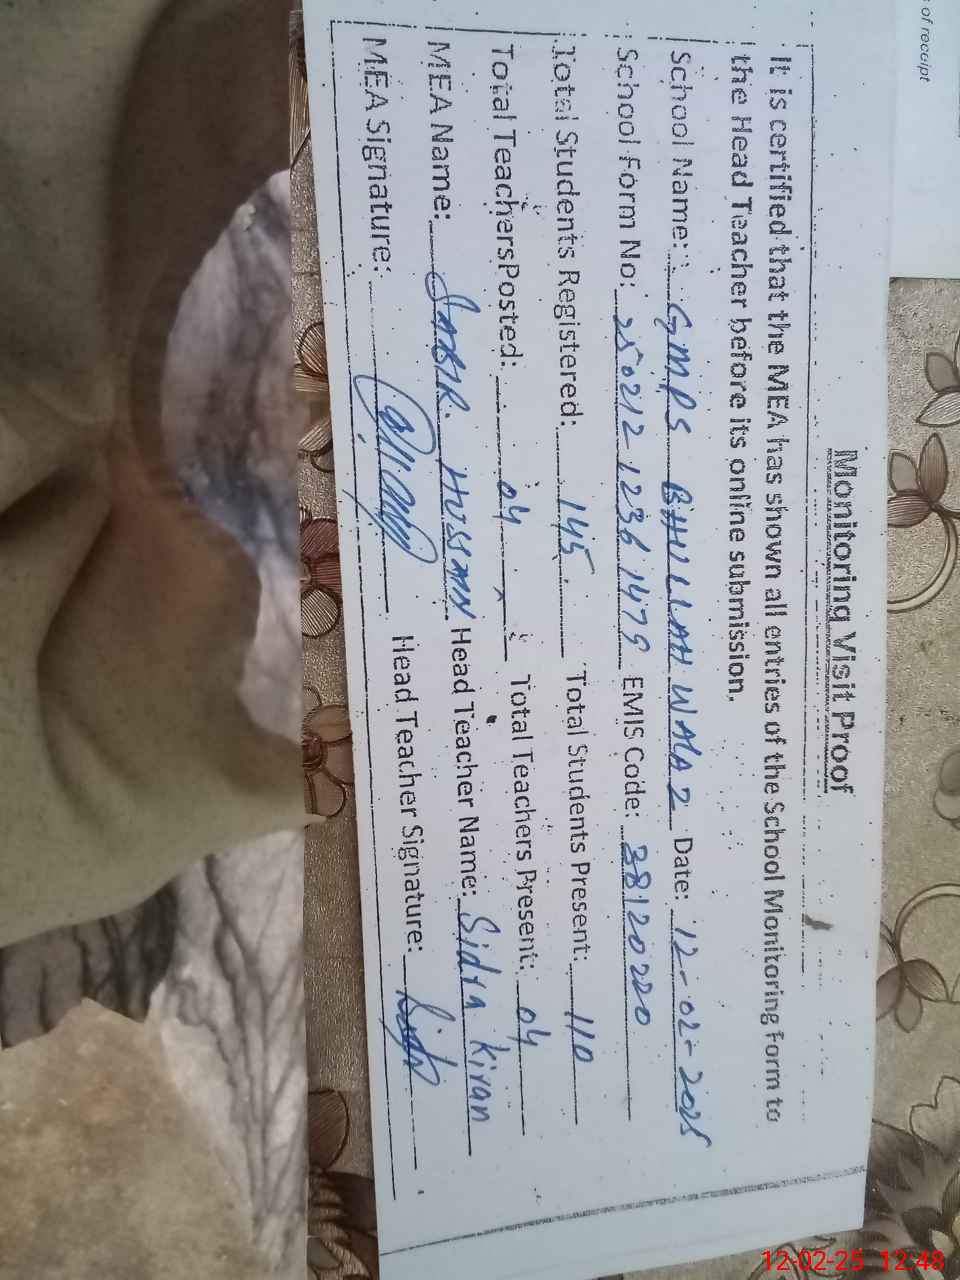 s of receipt
Monitoring Visit Proof
It is certified that the MEA has shown all entries of the School Monitoring Form to
the Head Teacher before its online submission.
School Name: GMPS BHULLAH WALA 2 Date: 12-02-2025
School Form No: 250212 1236 1479 EMIS Code: 38120220
Total Students Registered: 145 Total Students Present: 110
Total TeachersPosted: 04 Total Teachers Present: 04
MEA Name: SABIR HUSSAIN Head Teacher Name: Sidra Kiran
MEA Signature: Head Teacher Signature:
12-02-25 12:48